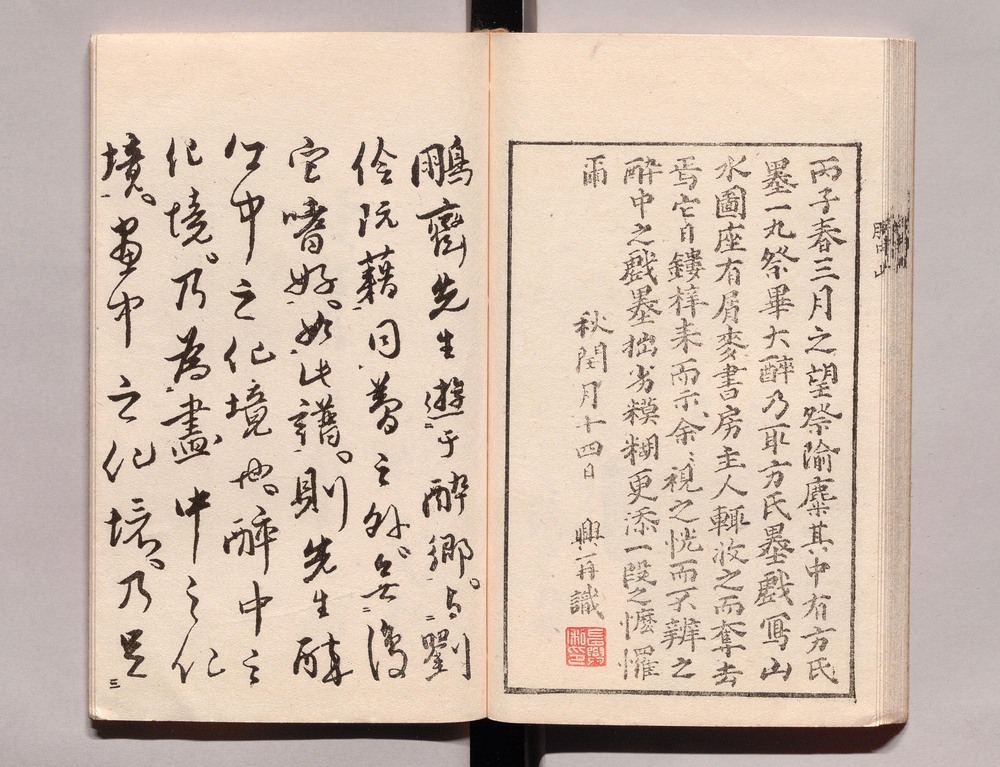 丙子春三月之望祭隃麋其中有方氏
墨一丸祭畢大醉乃取方氏墨戲寫山
水圖座有眉麥書房主人輒收之而奪去
焉它日鏤梓来而示余〻視之恍而不辨之
醉中之戲墨拙劣糢糊更添一段之懡㦬
爾
秋閏月十四日 興再識
鵬齋先生遊于醉鄉与劉
伶阮藉同夢之外無復
它嗜好如此譜則先生醉
𠆢中之化境也醉中之
化境乃為畫中之化
境畫中之化境乃是
三